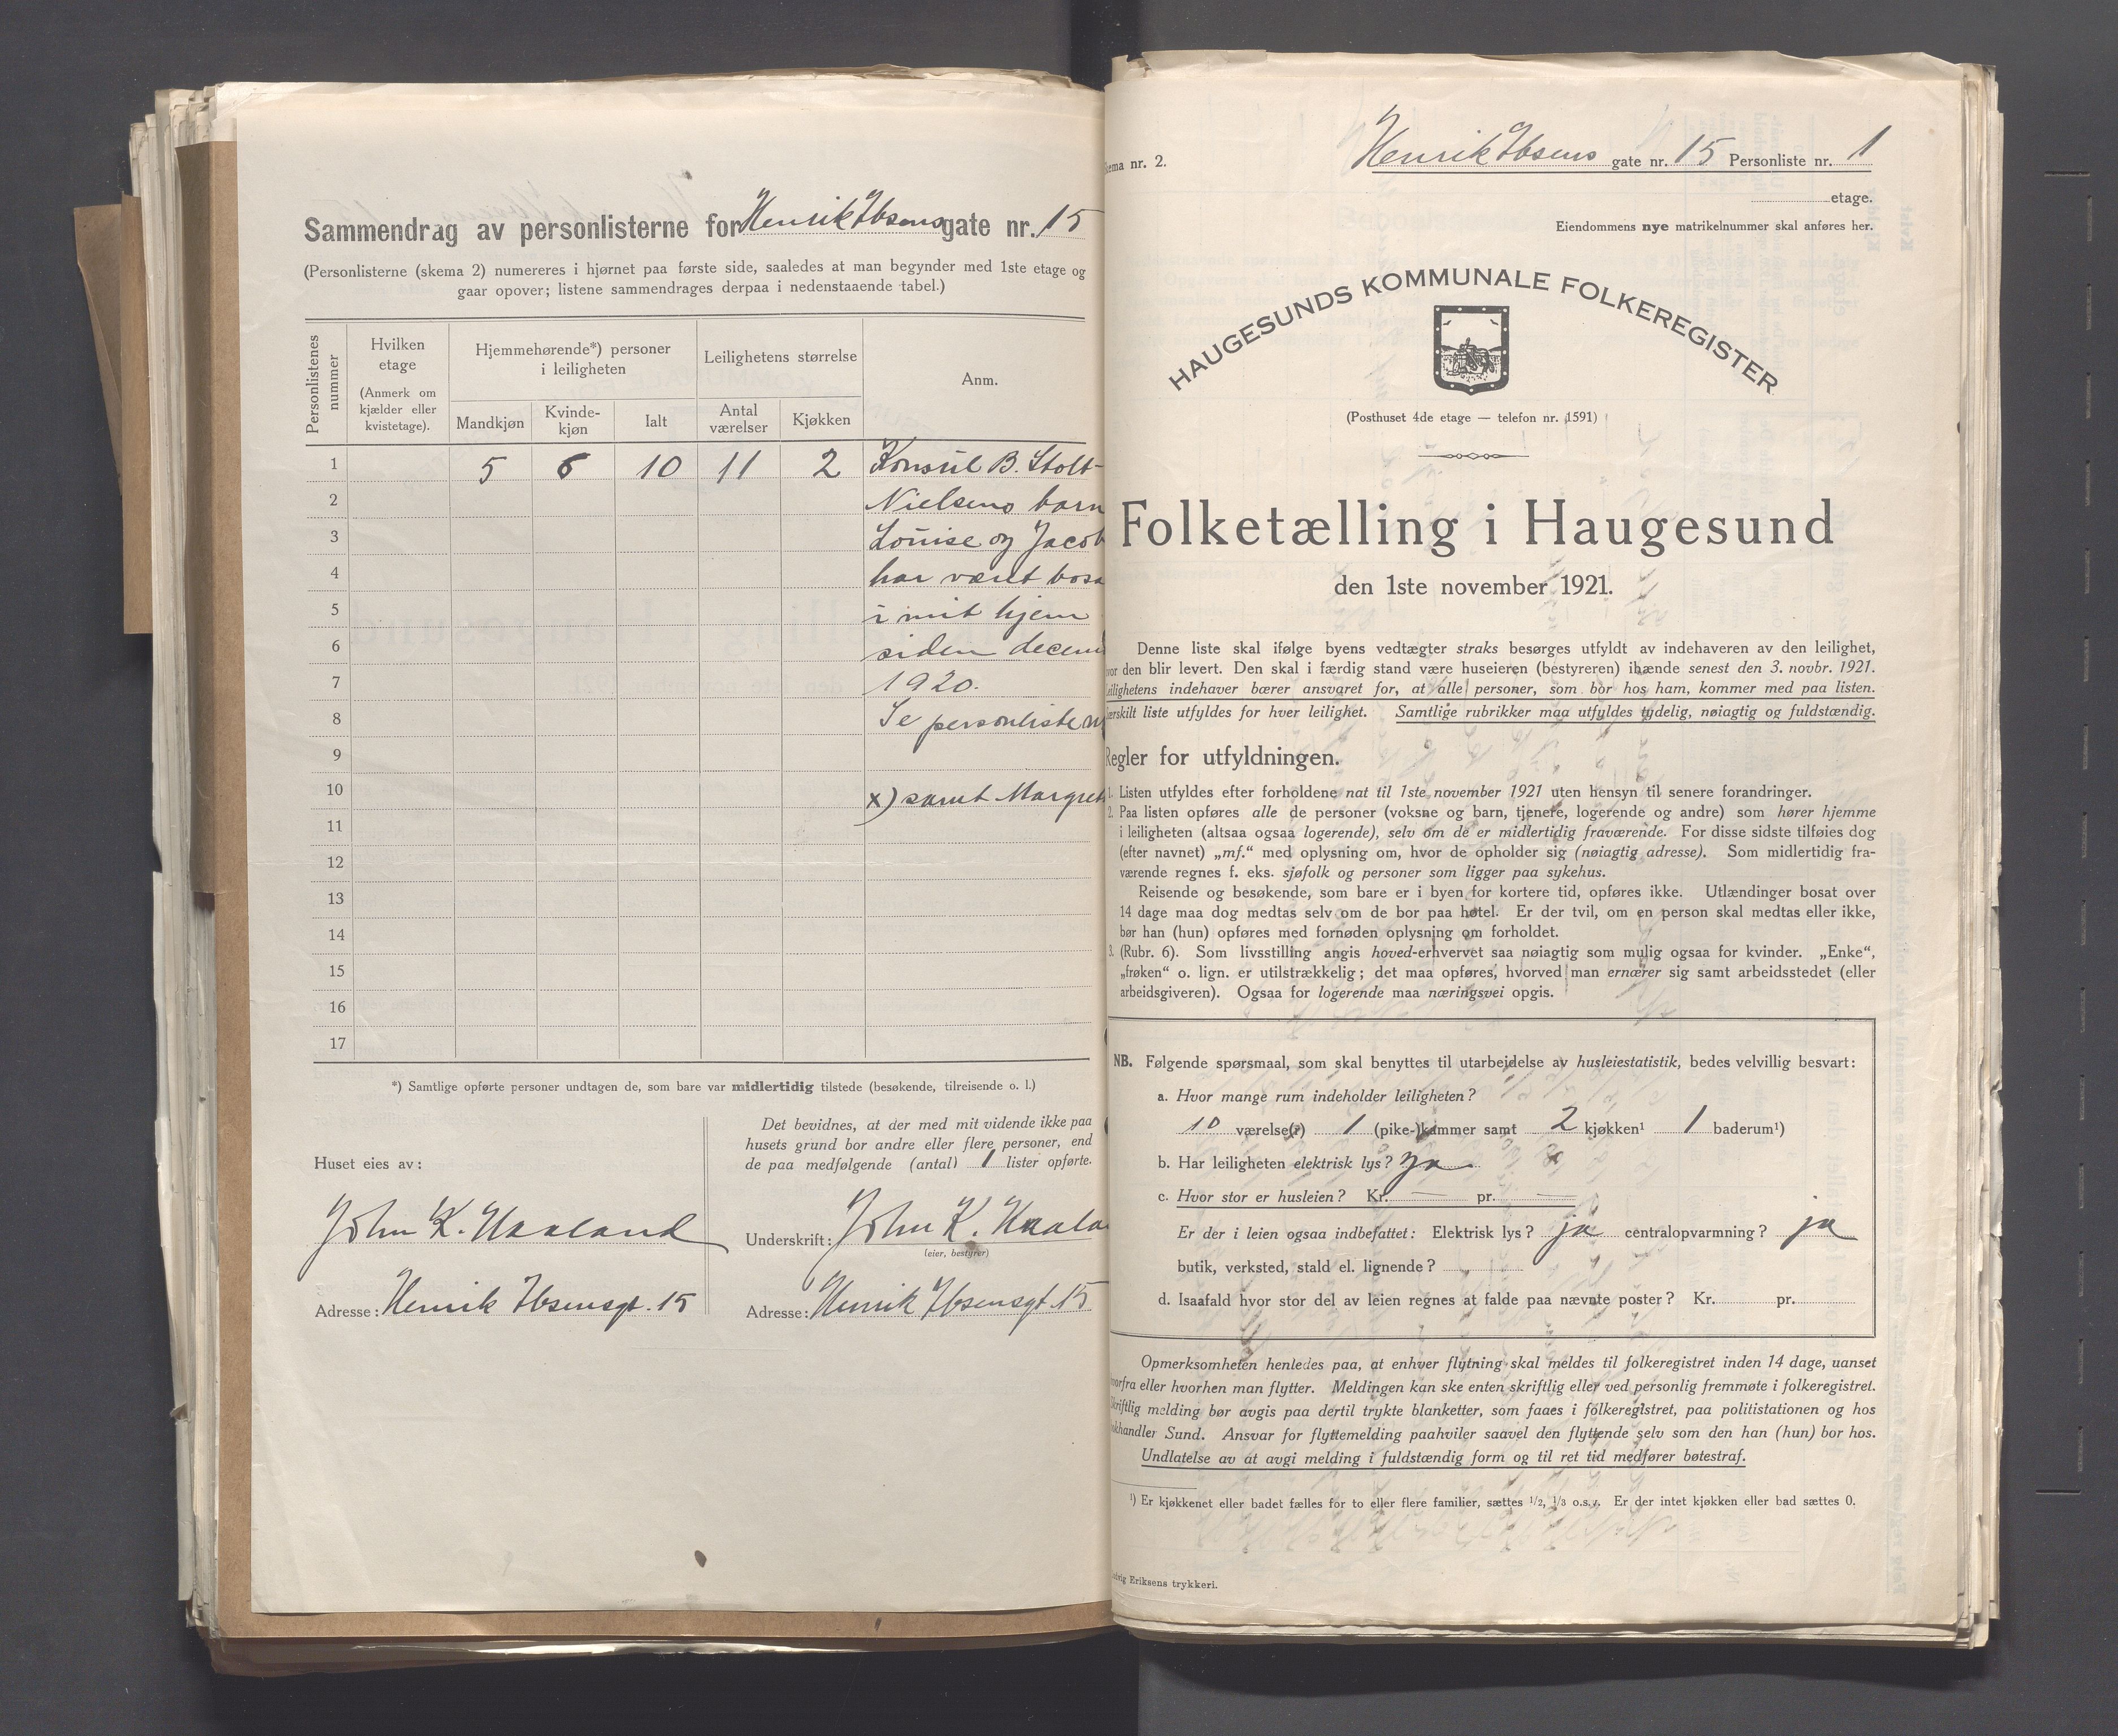 Sammendrag av personlisterne for Henrik Ibsens gate nr. 15
(Personlisterne (skema 2) numereres i hjørnet paa første side, saaledes at man begynder med 1ste etage og
gaar opover; listene sammendrages derpaa i nedenstaaende tabel.)
Personlistenes nummer
Hvilken etage
(Anmerk om kjælder eller kvistetage).
Hjemmehørende*) personer i leiligheten
Leilighetens størrelse
Anm.
Mandkjøn
Kvindekjøn
Ialt
Antal værelser
Kjøkken
1 5 6 10 11 2 Konsul B. Stolt-
2 Nielsens barn
3 Louise og Jacob
4 har været bosa
5 i mit hjem
6 siden decem
7 1920.
8 Se personliste
9
10 x) samt Margret
11
12
13
14
15
16
17
*) Samtlige opførte personer undtagen de, som bare var midlertidig tilstede (besøkende, tilreisende o. l.)
Huset eies av:
John K. Haaland
Adresse: Henrik Ibsensgt. 15
Det bevidnes, at der med mit vidende ikke paa
husets grund bor andre eller flere personer, end
de paa medfølgende (antal) 1 lister opførte.
Underskrift: John K. Haala
(eier, bestyrer)
Adresse: Henrik Ibsensgt. 15
ema nr. 2.
Henrik Ibsens gate nr. 15 Personliste nr. 1
etage.
Eiendommens nye matrikelnummer skal anføres her.
HAUGESUNDS KOMMUNALE FOLKEREGISTER
(Posthuset 4de etage — telefon nr. 1591)
Folketælling i Haugesund
den 1ste november 1921.
Denne liste skal ifølge byens vedtægter straks besørges utfyldt av indehaveren av den leilighet,
vor den blir levert. Den skal i færdig stand være huseieren (bestyreren) ihænde senest den 3. novbr. 1921.
eilighetens indehaver bærer ansvaret for, at alle personer, som bor hos ham, kommer med paa listen.
ærskilt liste utfyldes for hver leilighet. Samtlige rubrikker maa utfyldes tydelig, nøiagtig og fuldstændig.
Regler for utfyldningen.
1. Listen utfyldes efter forholdene nat til 1ste november 1921 uten hensyn til senere forandringer.
2. Paa listen opføres alle de personer (voksne og barn, tjenere, logerende og andre) som hører hjemme
i leiligheten (altsaa ogsaa logerende), selv om de er midlertidig fraværende. For disse sidste tilføies dog
(efter navnet) „mf.“ med oplysning om, hvor de opholder sig (nøiagtig adresse). Som midlertidig fra-
værende regnes f. eks. sjøfolk og personer som ligger paa sykehus.
Reisende og besøkende, som bare er i byen for kortere tid, opføres ikke. Utlændinger bosat over
14 dage maa dog medtas selv om de bor paa hotel. Er der tvil, om en person skal medtas eller ikke,
bør han (hun) opføres med fornøden oplysning om forholdet.
3. (Rubr. 6). Som livsstilling angis hoved-erhvervet saa nøiagtig som mulig ogsaa for kvinder. „Enke“,
„frøken“ o. lign. er utilstrækkelig; det maa opføres, hvorved man ernærer sig samt arbeidsstedet (eller
arbeidsgiveren). Ogsaa for logerende maa næringsvei opgis.
NB. Følgende spørsmaal, som skal benyttes til utarbeidelse av husleiestatistik, bedes velvillig besvart:
a. Hvor mange rum indeholder leiligheten?
10 værelse(r) 1 (pike-)kammer samt 2 kjøkken¹ 1 baderum¹)
b. Har leiligheten elektrisk lys? Ja
c. Hvor stor er husleien? Kr. — pr. —
Er der i leien ogsaa indbefattet: Elektrisk lys? ja centralopvarmning? ja
butik, verksted, stald el. lignende?
d. Isaafald hvor stor del av leien regnes at falde paa nævnte poster? Kr. pr.
Opmerksomheten henledes paa, at enhver flytning skal meldes til folkeregistret inden 14 dage, uanset
vorfra eller hvorhen man flytter. Meldingen kan ske enten skriftlig eller ved personlig fremmøte i folkeregistret.
kriftlig melding bør avgis paa dertil trykte blanketter, som faaes i folkeregistret, paa politistationen og hos
okhandler Sund. Ansvar for flyttemelding paahviler saavel den flyttende selv som den han (hun) bor hos.
Undlatelse av at avgi melding i fuldstændig form og til ret tid medfører bøtestraf.
¹) Er kjøkkenet eller badet fælles for to eller flere familier, sættes 1/2, 1/3 o.s.v. Er der intet kjøkken eller bad sættes 0.
dvig Eriksens trykkeri.